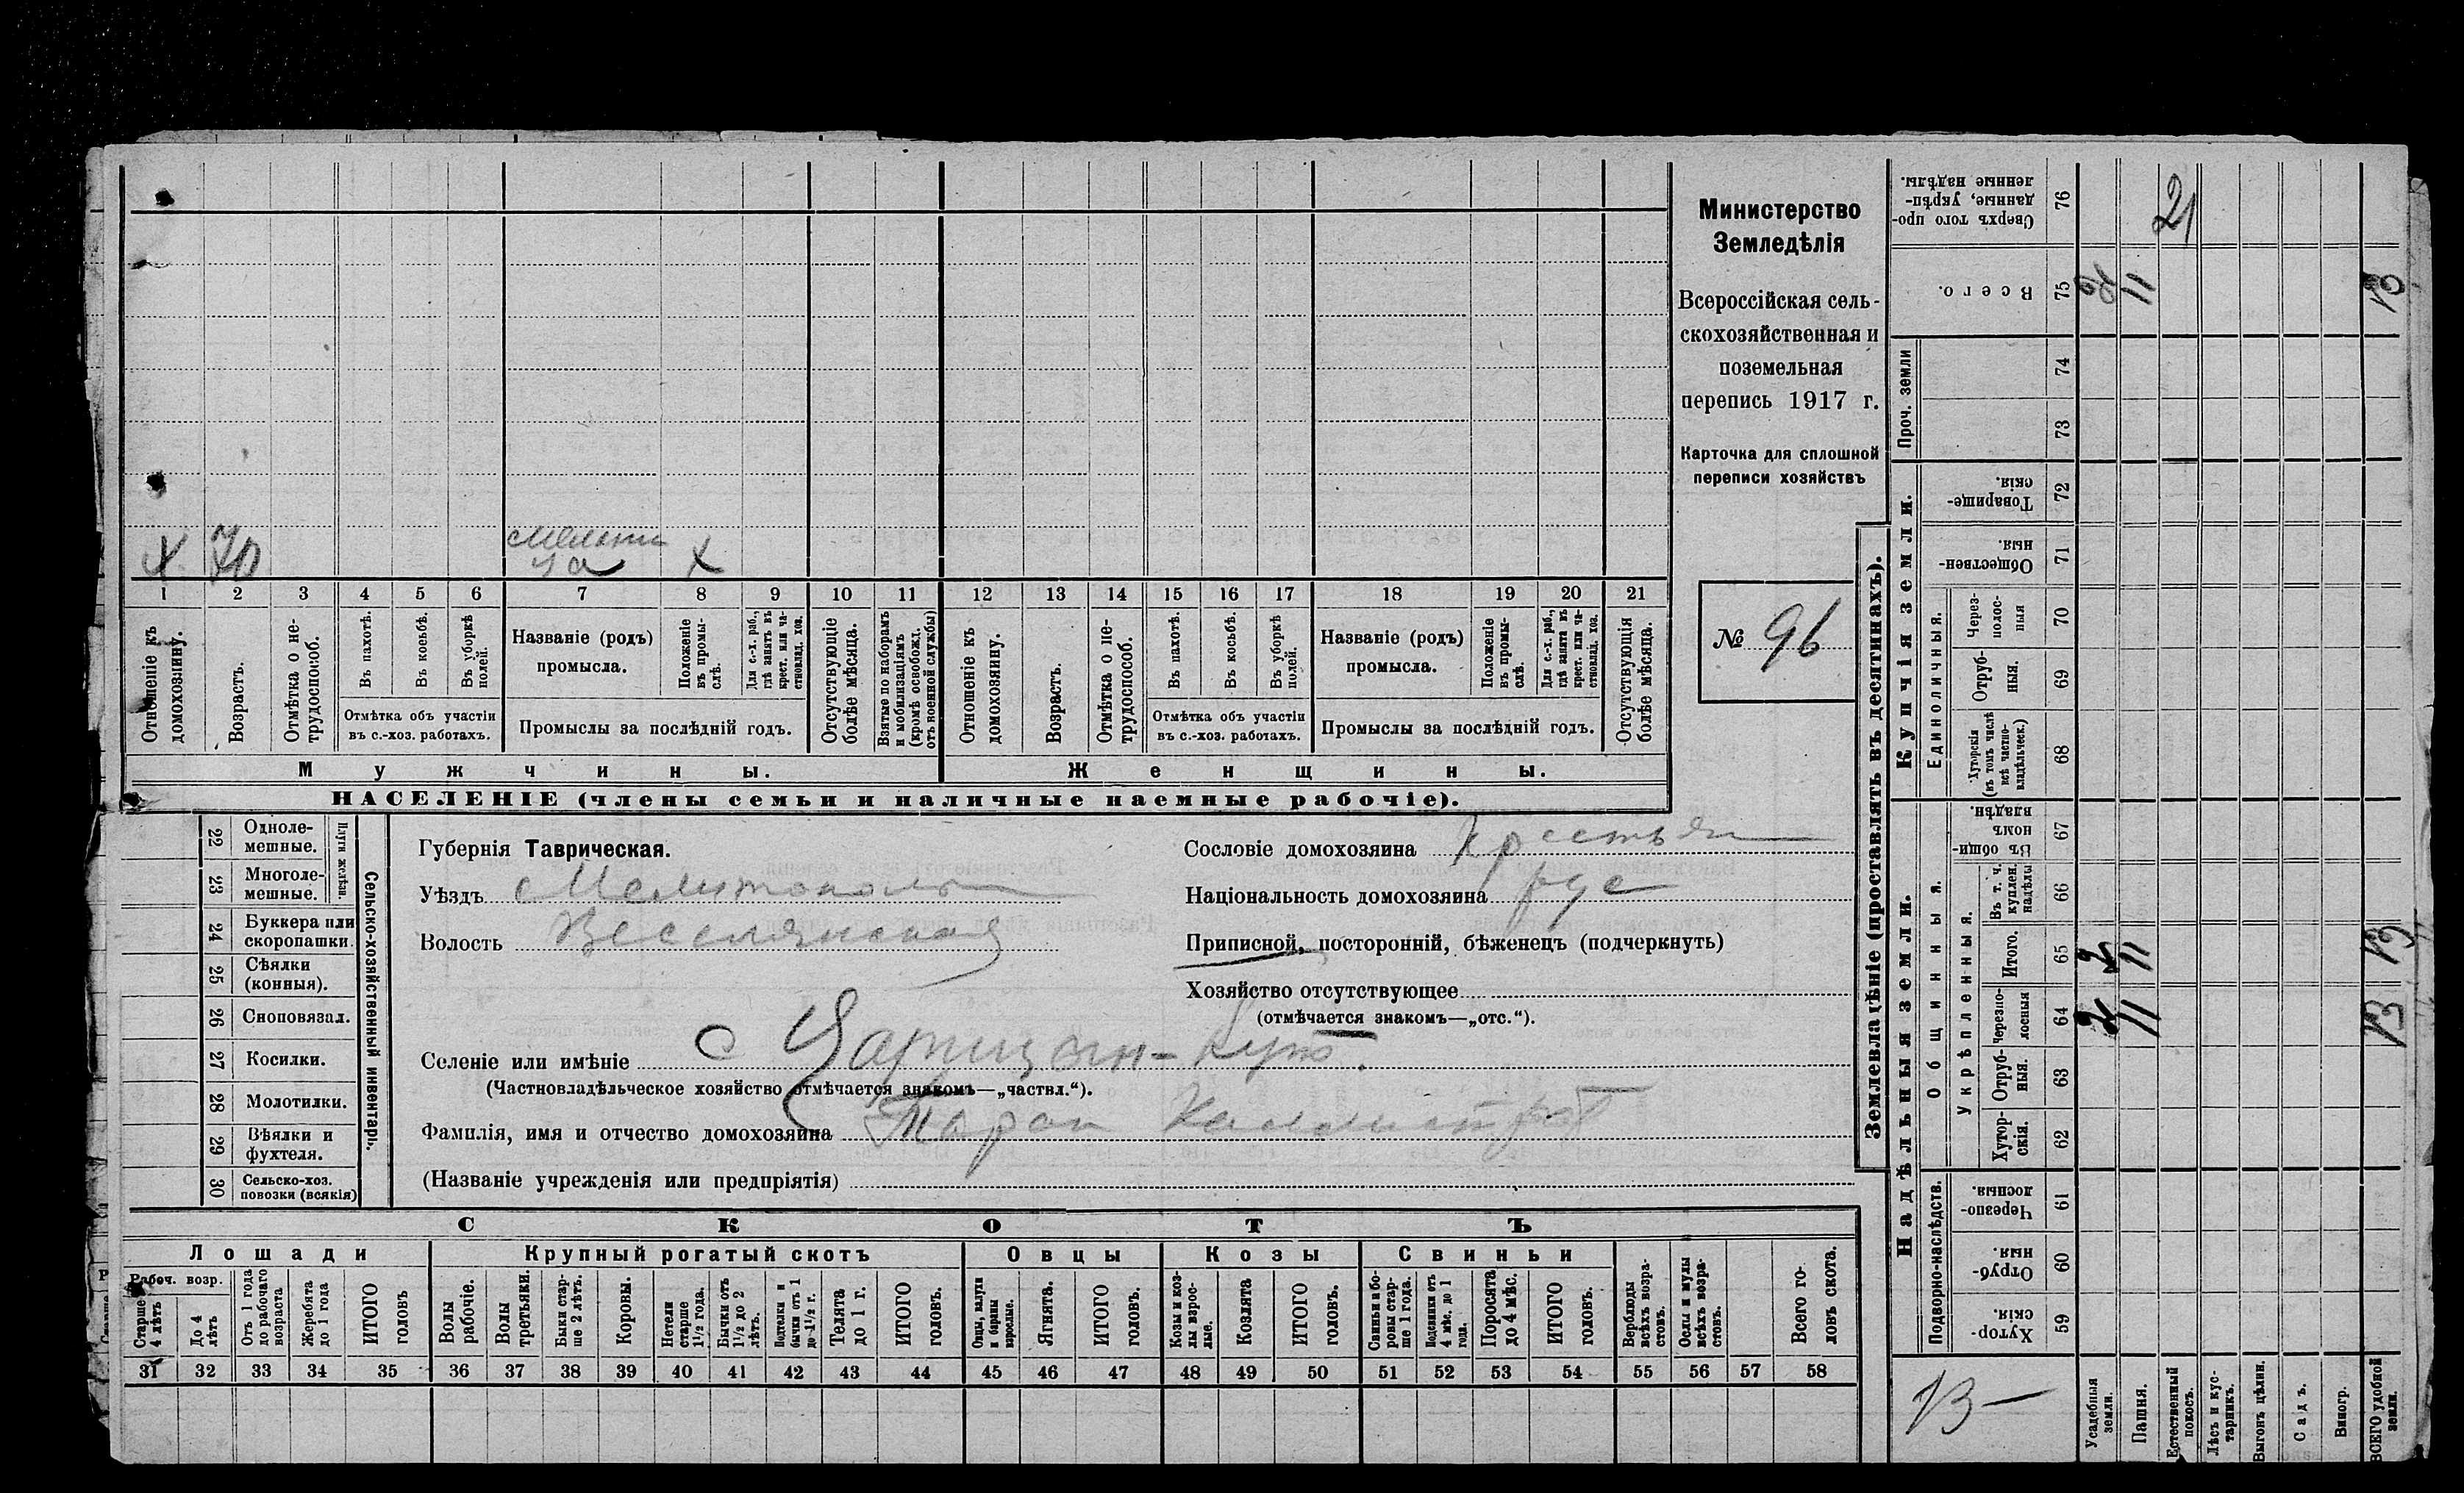 Министерство
Земледѣлія
Всероссійская сель-
скохозяйственная и
поземельная
перепись 1917 г.
Карточка для сплошной
переписи хозяйствъ
№ 96
х 70 мельни х
ца
1 2 3 4 5 6 7 8 9 10 11 12 13 14 15 16 17 18 19 20 21
Отношеніе къ домохозяину.
Возрастъ.
Отмѣтка о не-трудоспособ.
Въ пахотѣ.
Въ косьбѣ.
Въ уборкѣ полей.
Отмѣтка объ участіи
въ с.-хоз. работахъ.
Названіе (родъ)
промысла.
Положеніе въ промы-слѣ.
Для с.-х. раб., гдѣ занятъ въ крест. или ча-стновлад. хоз.
Промыслы за послѣдній годъ.
Отсутствующіе болѣе мѣсяца.
Взятые по наборамъ и мобилизаціямъ (кромѣ освобожд. отъ военной службы)
Отношеніе къ домохозяину.
Возрастъ.
Отмѣтка о не-трудоспособ.
Въ пахотѣ.
Въ косьбѣ.
Въ уборкѣ полей.
Отмѣтка объ участіи
въ с.-хоз. работахъ.
Названіе (родъ)
промысла.
Положеніе въ промы-слѣ.
Для с.-х. раб., гдѣ занята въ крест. или ча-стновлад. хоз.
Промыслы за послѣдній годъ.
Отсутствующія болѣе мѣсяца.
Мужчины.
Женщины.
НАСЕЛЕНІЕ (члены семьи и наличные наемные рабочіе).
Сельско-хозяйственный инвентарь.
Плуги желѣзн.
22 Одноле-мешные.
23 Многоле-мешные.
24 Буккера или скоропашки.
25 Сѣялки (конныя).
26 Сноповязал.
27 Косилки.
28 Молотилки.
29 Вѣялки и фухтеля.
30 Сельско-хоз. повозки (всякія)
Губернія Таврическая.
Уѣздъ Мелитополь
Волость Веселянская
Сословіе домохозяина крестьян
Національность домохозяина рус
Приписной, посторонній, бѣженецъ (подчеркнуть)
Хозяйство отсутствующее
(отмѣчается знакомъ—„отс.“).
Селеніе или имѣніе с Царицын-Кут.
(Частновладѣльческое хозяйство отмѣчается знакомъ—„частвл.“).
Фамилія, имя и отчество домохозяина Таран Каллистрат
(Названіе учрежденія или предпріятія)
СКОТЪ
Лошади
Рабоч. возр.
Старше 4 лѣтъ
До 4 лѣтъ
Отъ 1 года до рабочаго возраста
Жеребята до 1 года
ИТОГО головъ
Крупный рогатый скотъ
Волы рабочіе.
Волы третьяки.
Быки стар-ше 2 лѣтъ.
Коровы.
Нетели старше 1½ года.
Бычки отъ 1½ до 2 лѣтъ.
Подтелки и бычки отъ 1 до 1½ г.
Телята до 1 г.
ИТОГО головъ.
Овцы
Овцы, валухи и бараны взрослые.
Ягнята.
ИТОГО головъ.
Козы
Козы и коз-лы взрос-лые.
Козлята
ИТОГО головъ.
Свиньи
Свиньи и бо-ровы стар-ше 1 года.
Подсвинки отъ 4 мѣс. до 1 года.
Поросята до 4 мѣс.
ИТОГО головъ.
Верблюды всѣхъ возра-стовъ.
Ослы и мулы всѣхъ возра-стовъ.
Всего го-ловъ скота.
31 32 33 34 35 36 37 38 39 40 41 42 43 44 45 46 47 48 49 50 51 52 53 54 55 56 57 58
Землевладѣніе (проставлять въ десятинахъ).
Купчія земли.
Надѣльныя земли.
Сверхъ того про-данные, укрѣп-ленные надѣлы. 76 21
Всего. 75 2 11 13
Проч. земли
74
73
Товарище-скія. 72
Обществен-ныя. 71
Единоличныя.
Через-полос-ныя 70
Отруб-ныя. 69
Хуторскія (въ томъ числѣ всѣ частно-владѣльческ.) 68
Общинныя.
Въ общи-номъ владѣн. 67
Укрѣпленныя.
Въ т. ч. куплен. надѣлы 66
Итого. 65 2 11 13
Черезпо-лосныя 64 2 11 13
Отруб-ныя. 63
Хутор-скія. 62
Подворно-наслѣдств.
Черезпо-лосныя. 61
Отруб-ныя. 60
Хутор-скія. 59
13 —
Усадебныя земли.
Пашня.
Естественный покосъ.
Лѣсъ и кус-тарникъ.
Выгонъ цѣлин.
Садъ.
Виногр.
ВСЕГО удобной земли.